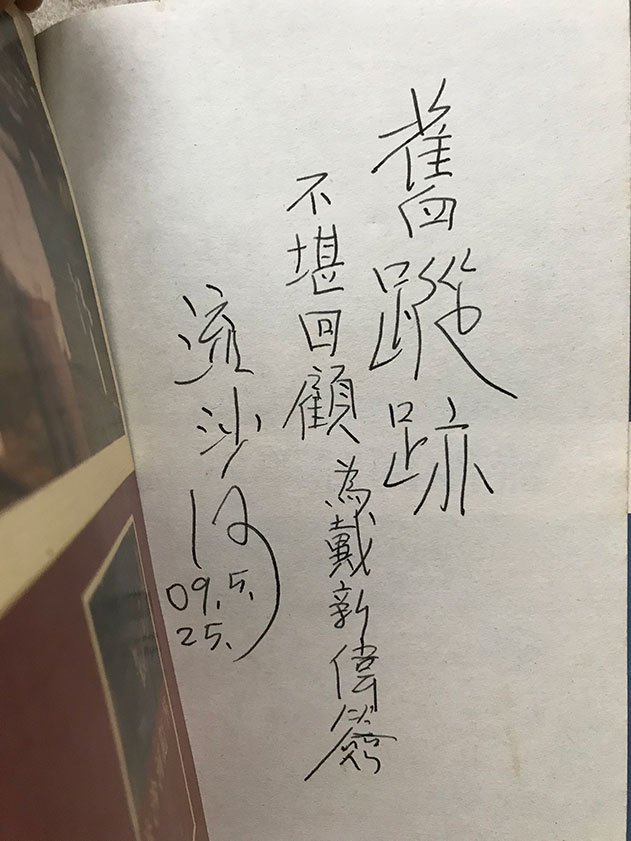 舊蹤跡
不堪回顧
為戴新偉簽
流沙河
09.5.
25.